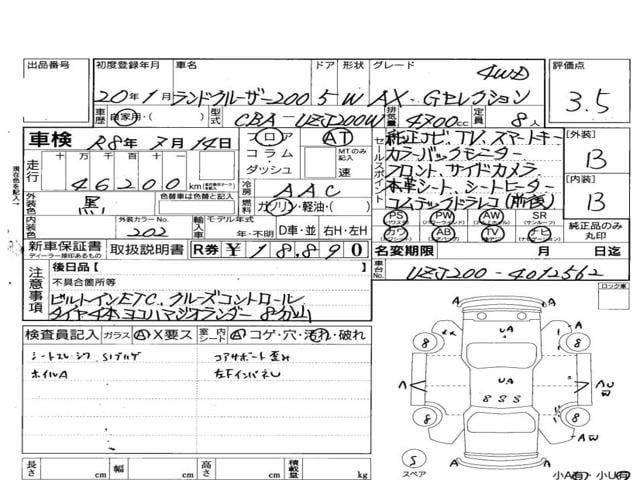 出品番号 初度登録年月 車名 ドア 形状 グレード 評価点
20年1月 ランドクルーザー200 5 W AX・Gセレクション 4WD 3.5
車歴 自家用・( ) 型式 CBA-UZJ200W 排気量 4700cc 定員 8人
車検 R8年7月14日 フロア コラム ダッシュ AT MTのみ記入 速
走行 十万千百十 46200km
冷房 AAC
燃料 ガソリン・軽油・( )
外装色 黒 色替車は色替と記入
内装色 外装カラーNo. 202
輸入車 モデル年式 年・不明 D車・並 右H・左H
セールスポイント 純正ナビ、TV、スマートキー
カラーバックモニター
フロント、サイドカメラ
本革シート、シートヒーター
コムテックドラレコ(前後)
PS PW AW SR
カワ AB TV ナビ
[外装] B
[内装] B
純正品のみ丸印
新車保証書 取扱説明書 R券 ¥18,890
ディーラー捺印あるもの
名変期限 月 日迄
車台No. UZJ200-4012562
現在色を記入
注意事項
後日品[ ]
不具合箇所等
ビルトインETC、クルーズコントロール
タイヤ4本ヨコハマジオランダー8分山
検査員記入 ガラス A X要ス 室内シート A コゲ・穴・汚れ・破れ
コアサポート歪み
ホイルA 左FインパネU
ロック車
UA
8 8
A UA A U
8 S S
8 8
A A
S スペア
小A有・小U有
長さ cm 幅 cm 高さ cm 積載量 kg